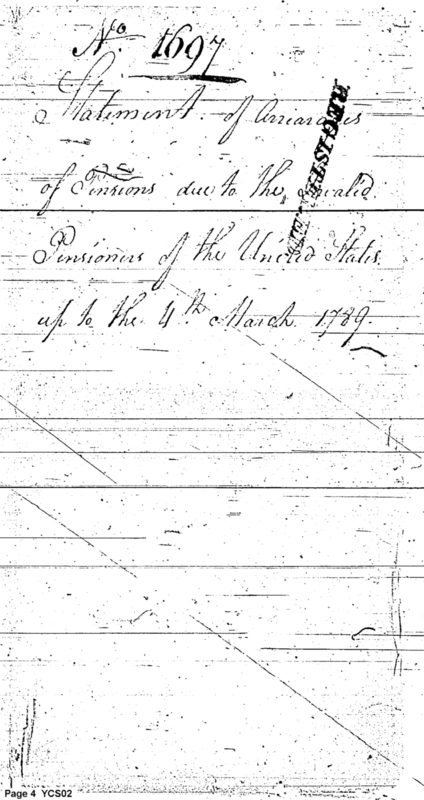 No. 1697
Statement of Arrearages
of Pensions due to the Invalid
Pensioners of the United States
up to the 4th March 1789.
REGISTERED
Page 4 YCS02